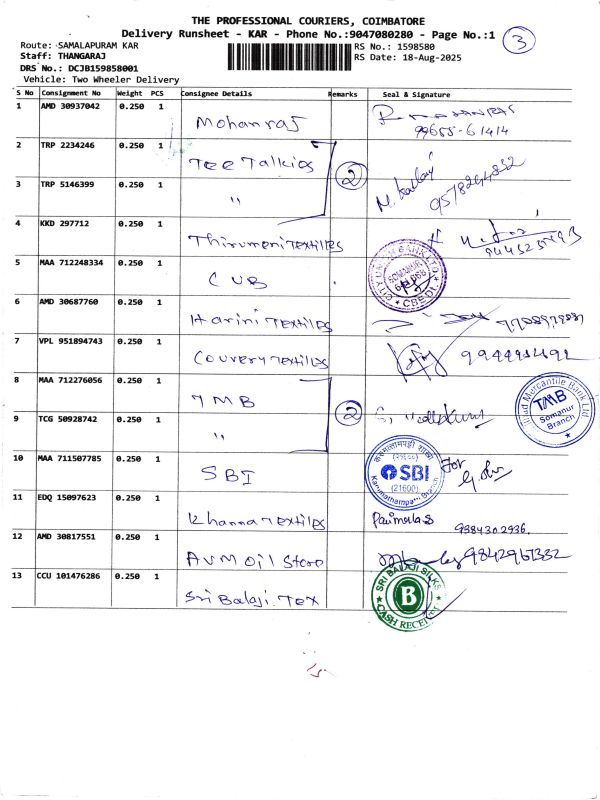 THE PROFESSIONAL COURIERS, COIMBATORE
Delivery Runsheet - KAR - Phone No.:9047080280 - Page No.:1
3
Route: SAMALAPURAM KAR
RS No.: 1598580
Staff: THANGARAJ
RS Date: 18-Aug-2025
DRS No.: DCJB159858001
Vehicle: Two Wheeler Delivery
S No Consignment No Weight PCS Consignee Details Remarks Seal & Signature
1 AMD 30937042 0.250 1 Mohanraj
99655-61414
2 TRP 2234246 0.250 1 Tee Talkies 2
3 TRP 5146399 0.250 1 "
4 KKD 297712 0.250 1 Thirumeni Textiles
5 MAA 712248334 0.250 1 CUB
CITY UNION BANK LTD
SOMANUR
6 AMD 30687760 0.250 1 Harini Textiles
7 VPL 951894743 0.250 1 Couvery Textiles
8 MAA 712276056 0.250 1 TMB 2
Mercantile Bank Ltd
TMB
Somanur
Branch
9 TCG 50928742 0.250 1 "
10 MAA 711507785 0.250 1 SBI
SBI
(21600)
For
11 EDQ 15097623 0.250 1 Khanna Textiles
9384302936.
12 AMD 30817551 0.250 1 AVM Oil Store 9842961332
13 CCU 101476286 0.250 1 Sri Balaji. Tex
SRI BALAJI SILKS
B
CASH RECEIVED